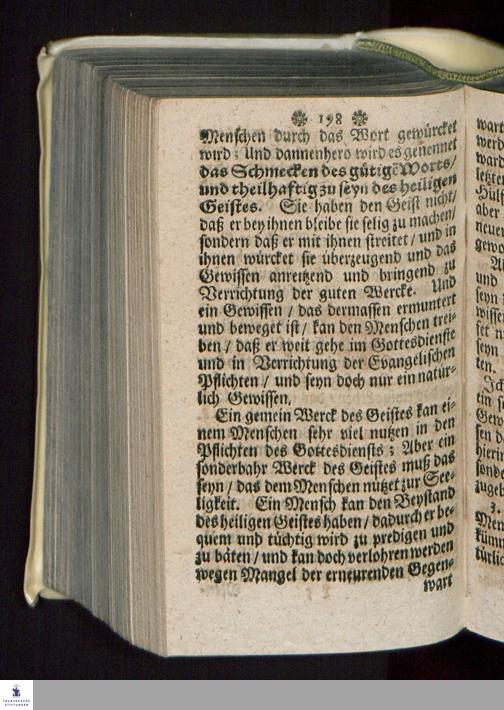 ❁ 198 ❁
Menschen durch das Wort gewürcket
wird; Und dannenhero wird es genennet
das Schmecken des gütigē Worts/
und theilhafftig zu seyn des heiligen
Geistes. Sie haben den Geist nicht/
daß er bey ihnen bleibe sie selig zu machen/
sondern daß er mit ihnen streitet/ und in
ihnen würcket sie überzeugend und das
Gewissen anreitzend und bringend zu
Verrichtung der guten Wercke. Und
ein Gewissen/ das dermassen ermuntert
und beweget ist/ kan den Menschen trei-
ben/ daß er weit gehe im Gottesdienste
und in Verrichtung der Evangelischen
Pflichten/ und seyn doch nur ein natür-
lich Gewissen.
Ein gemein Werck des Geistes kan ei-
nem Menschen sehr viel nutzen in den
Pflichten des Gottesdiensts; Aber ein
sonderbahr Werck des Geistes muß das
seyn/ das dem Menschen nützet zur See-
ligkeit. Ein Mensch kan den Beystand
des heiligen Geistes haben/ dadurch er be-
quem und tüchtig wird zu predigen und
zu bäten/ und kan doch verlohren werden
wegen Mangel der erneurenden Gegen-
wart